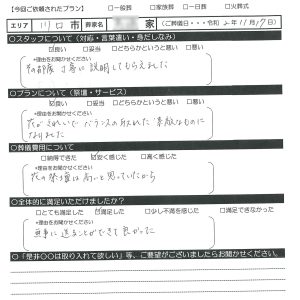 【今回ご依頼されたプラン】 □一般葬 □家族葬 □一日葬 □火葬式
エリア 川口市 葬家名 家 (ご葬儀日・・令和 2年 11月 17日)
○スタッフについて(対応・言葉遣い・身だしなみ)
☑良い □妥当 □どちらかというと悪い □悪い
*理由をお聞かせください
その都度 丁寧に説明してもらえました
○プランについて(祭壇・サービス)
☑良い □妥当 □どちらかというと悪い □悪い
*理由をお聞かせください
花がきれいで バランスの取れた 素敵なものに
なりました
○葬儀費用について
□納得できた ☑安く感じた □高く感じた
*理由をお聞かせください
花の祭壇は高いと思っていたから
○全体的に満足いただけましたか?
□とても満足した ☑満足した □少し不満を感じた □満足できなかった
*理由をお聞かせください
無事に送ることができて良かった
○「是非○○は取り入れて欲しい」等、ご要望がございましたらお聞かせください。